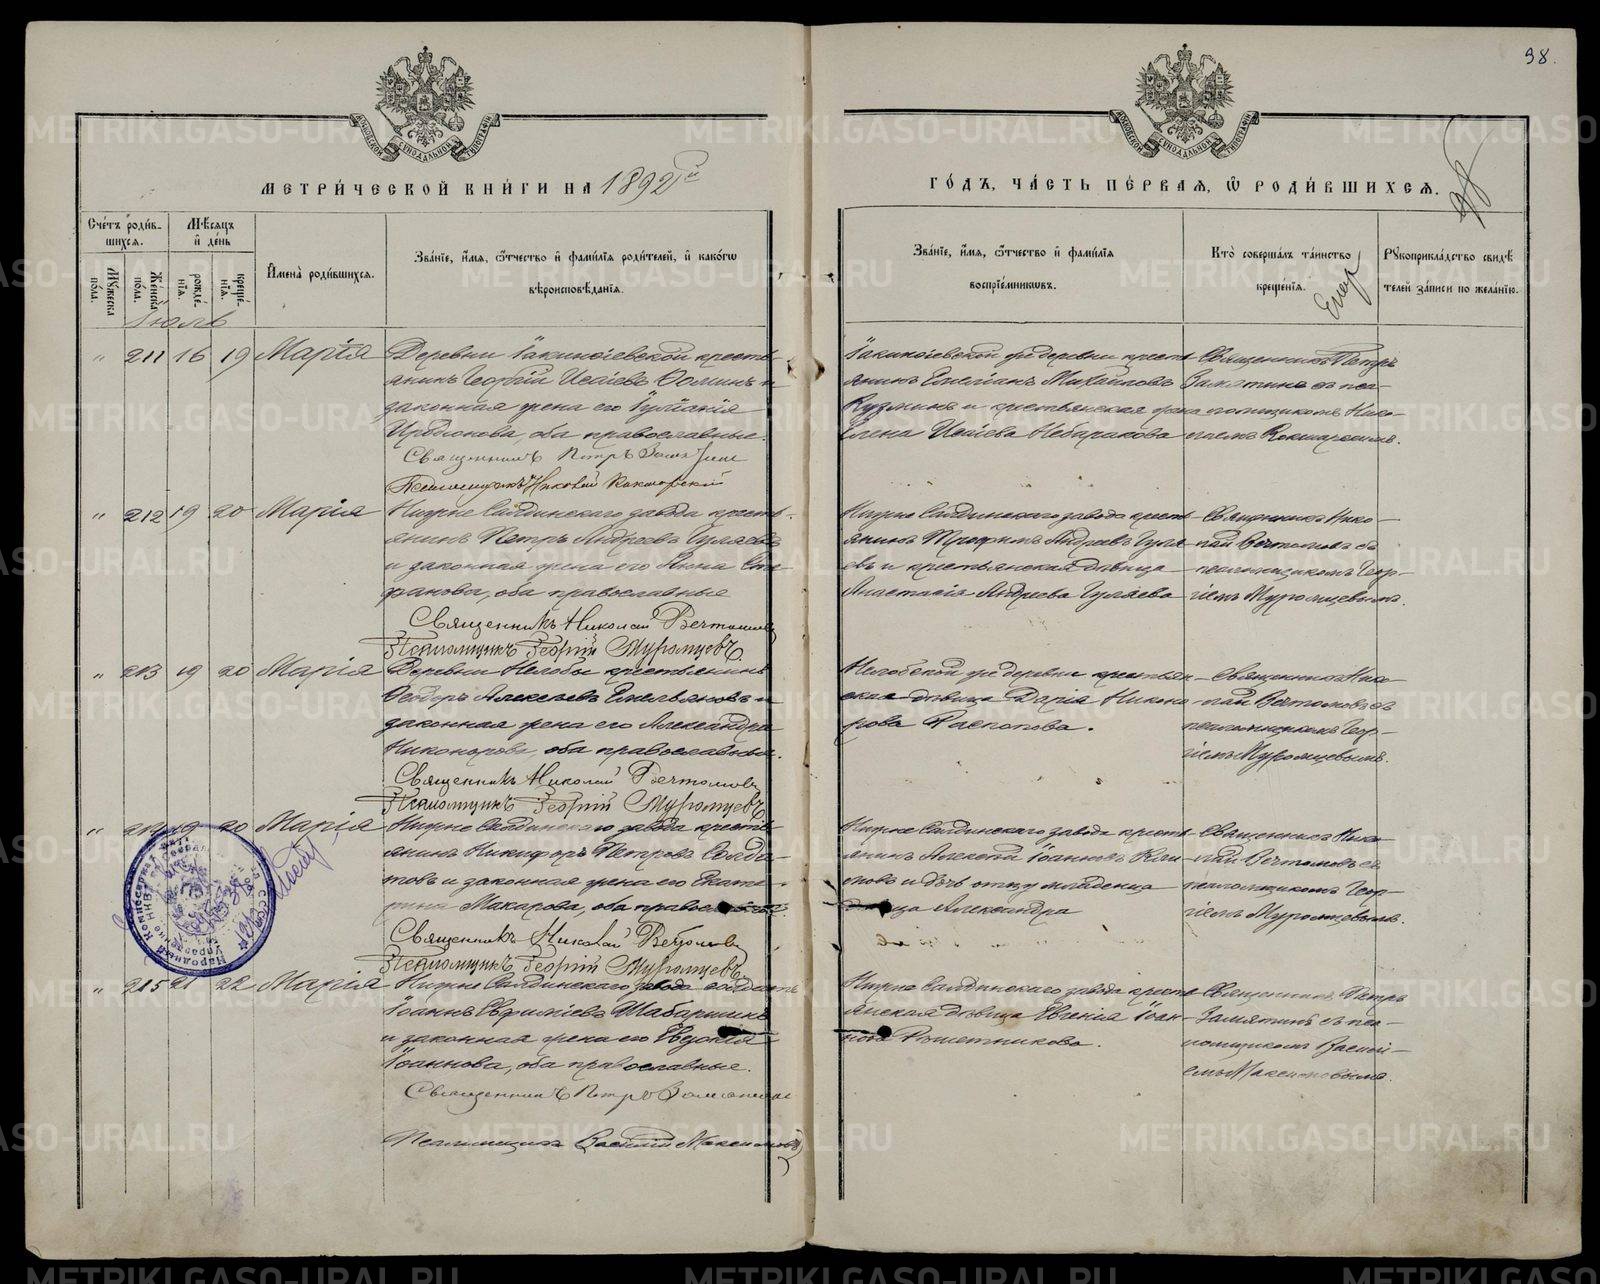 98.
МЕТРИ́ЧЕСКОЙ КНИ́ГИ НА 1892й
ГО́ДЪ, ЧА́СТЬ ПЕ́РВАЯ, Ѽ РОДИ́ВШИХСЯ.
Сче́тъ роди́в-
шихся.
Мѣ́сяцъ
и҆ де́нь
Мꙋ́жеска
по́ла.
Же́нска
по́ла.
рожде́-
нїя.
креще́-
нїя.
И҆мена̀ роди́вшихся.
Зва́нїе, и҆́мя, ѻ҆́тчество и҆ фами́лїя роди́телей, и҆ како́гѡ
вѣроисповѣ́данїя.
Зва́нїе, и҆́мя, ѻ҆́тчество и҆ фами́лїя
воспрїе́мникѡвъ.
Кто̀ соверша́лъ та́инство
креще́нїя.
Рꙋкоприкла́дство свидѣ́
телей за́писи по жела́нїю.
Іюль
" 211 16 19 Марія
Деревни Іакинѳіевской кресть-
янинъ Георгій Исаіевъ Ѳоминъ и
законная жена его Іуліанія
Иродіонова, оба православные.
Священникъ Петръ Замятин
Псаломщикъ Николай
Іакинѳіевской же деревни кресть-
янинъ Емеліанъ Михайловъ
Кузминъ и крестьянская жена
Елена Исаіева
Священникъ Петръ
Замятинъ съ пса-
ломщикомъ Нико-
лаемъ
" 212 19 20 Марія
Нижне Салдинскаго завода кресть-
янинъ Петръ Андреевъ Гуляевъ
и законная жена его Анна Сте-
фанова, оба православные
Священникъ Николай Вечтомовъ
Псаломщикъ Георгій Муромцевъ.
Нижне Салдинскаго завода кресть-
янинъ Трофимъ Андреевъ Гуля
евъ и крестьянская дѣвица
Анастасія Андреева Гуляева
Священникъ Нико-
лай Вечтомовъ съ
псаломщикомъ Геор-
гіемъ Муромцевымъ.
" 213 19 20 Марія
Деревни Нелобы крестьянинъ
Ѳеодоръ Алексіевъ Емельяновъ и
законная жена его Александра
Никонорова, оба православные.
Священникъ Николай Вечтомовъ
Псаломщикъ Георгій Муромцевъ
Нелобской же деревни крестьян-
ская дѣвица Дарія Никоно
рова Распопова.
Священникъ Нико-
лай Вечтомовъ съ
псаломщикомъ Геор-
гіемъ Муромцевымъ.
" 214 19 20 Марія
Нижне Салдинскаго завода кресть-
янинъ Никифоръ Петровъ Солда-
товъ и законная жена его Екате-
рина Макарова, оба православные.
Священникъ Николай Вечтомовъ
Псаломщикъ Георгій Муромцевъ
Нижне Салдинскаго завода кресть-
янинъ Алексій Іоанновъ
и дочь отцу младенца
дѣвица Александра
Священникъ Нико-
лай Вечтомовъ съ
псаломщикомъ Геор-
гіемъ Муромцевымъ.
" 215 21 22 Марія
Нижне Салдинскаго завода солдатъ
Іоаннъ Евѳиміевъ Шабаршинъ
и законная жена его Евдокія
Іоаннова, оба православные.
Священникъ Петръ Замятинъ
Псаломщикъ Василій Максимовъ
Нижне Салдинскаго завода кресть-
янская дѣвица Евгенія Іоан-
нова Решетникова.
Священникъ Петръ
Замятинъ съ пса-
ломщикомъ Василі-
емъ Максимовымъ.
METRIKI.GASO-URAL.RU